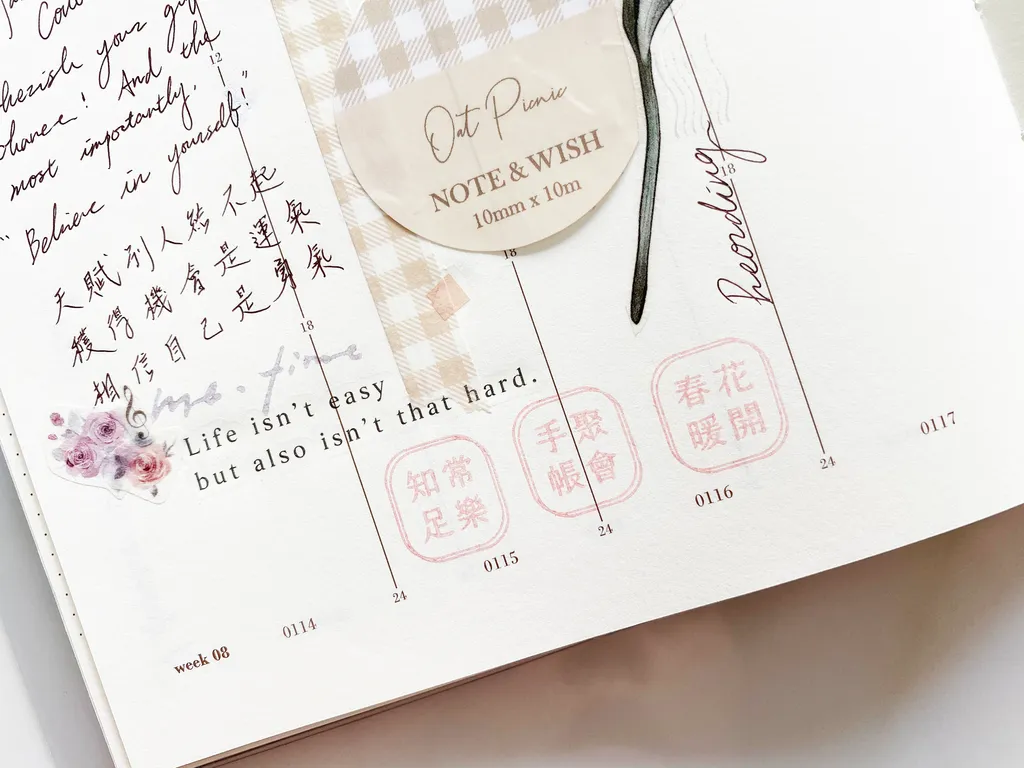 herish your
chance! And the
most importantly,
"Believe in yourself!"
天賦別人給不起
獲得機會是運氣
相信自己是勇氣
Life isn't easy
but also isn't that hard.
Oat Picnic
NOTE & WISH
10mm x 10m
12
18
18
18
24
24
24
知足
常樂
手帳
聚會
春暖
花開
0114
0115
0116
0117
week 03